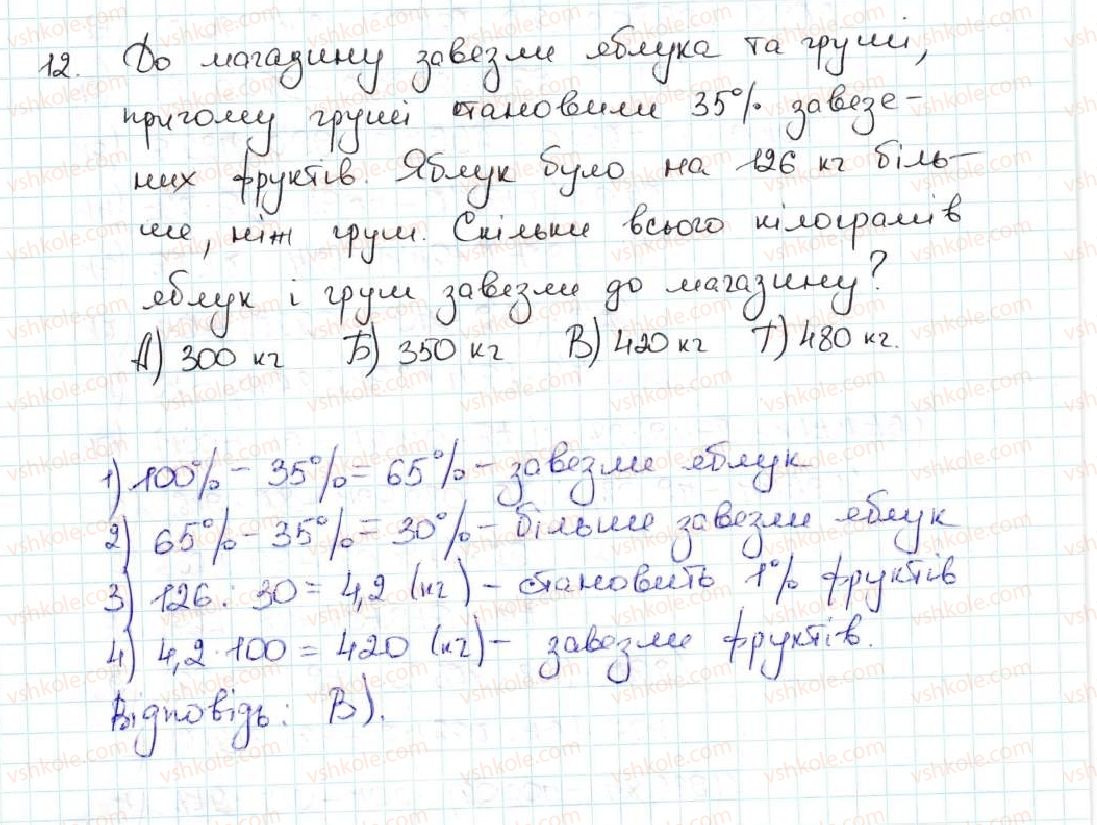 12. До магазину завезли яблука та груші,
причому груші становили 35% завезе-
них фруктів. Яблук було на 126 кг біль-
ше, ніж груш. Скільки всього кілограмів
яблук і груш завезли до магазину?
А) 300 кг Б) 350 кг В) 420 кг Г) 480 кг.
1) 100% - 35% = 65% - завезли яблук
2) 65% - 35% = 30% - більше завезли яблук
3) 126 : 30 = 4,2 (кг) - становить 1% фруктів
4) 4,2 · 100 = 420 (кг) - завезли фруктів.
Відповідь: В).
vshkole.com